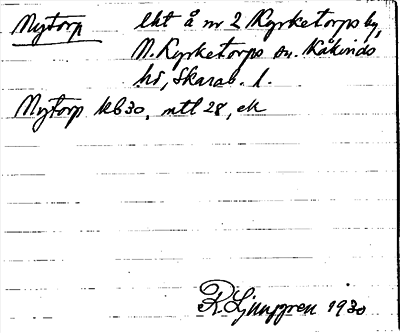 Nytorp lht å nr 2 Kyrketorps by,
N. Kyrketorps sn. Kåkinds
hd, Skarab. l.
Nytorp Kb 30, mtl 28, ek
R. Ljunggren 1930